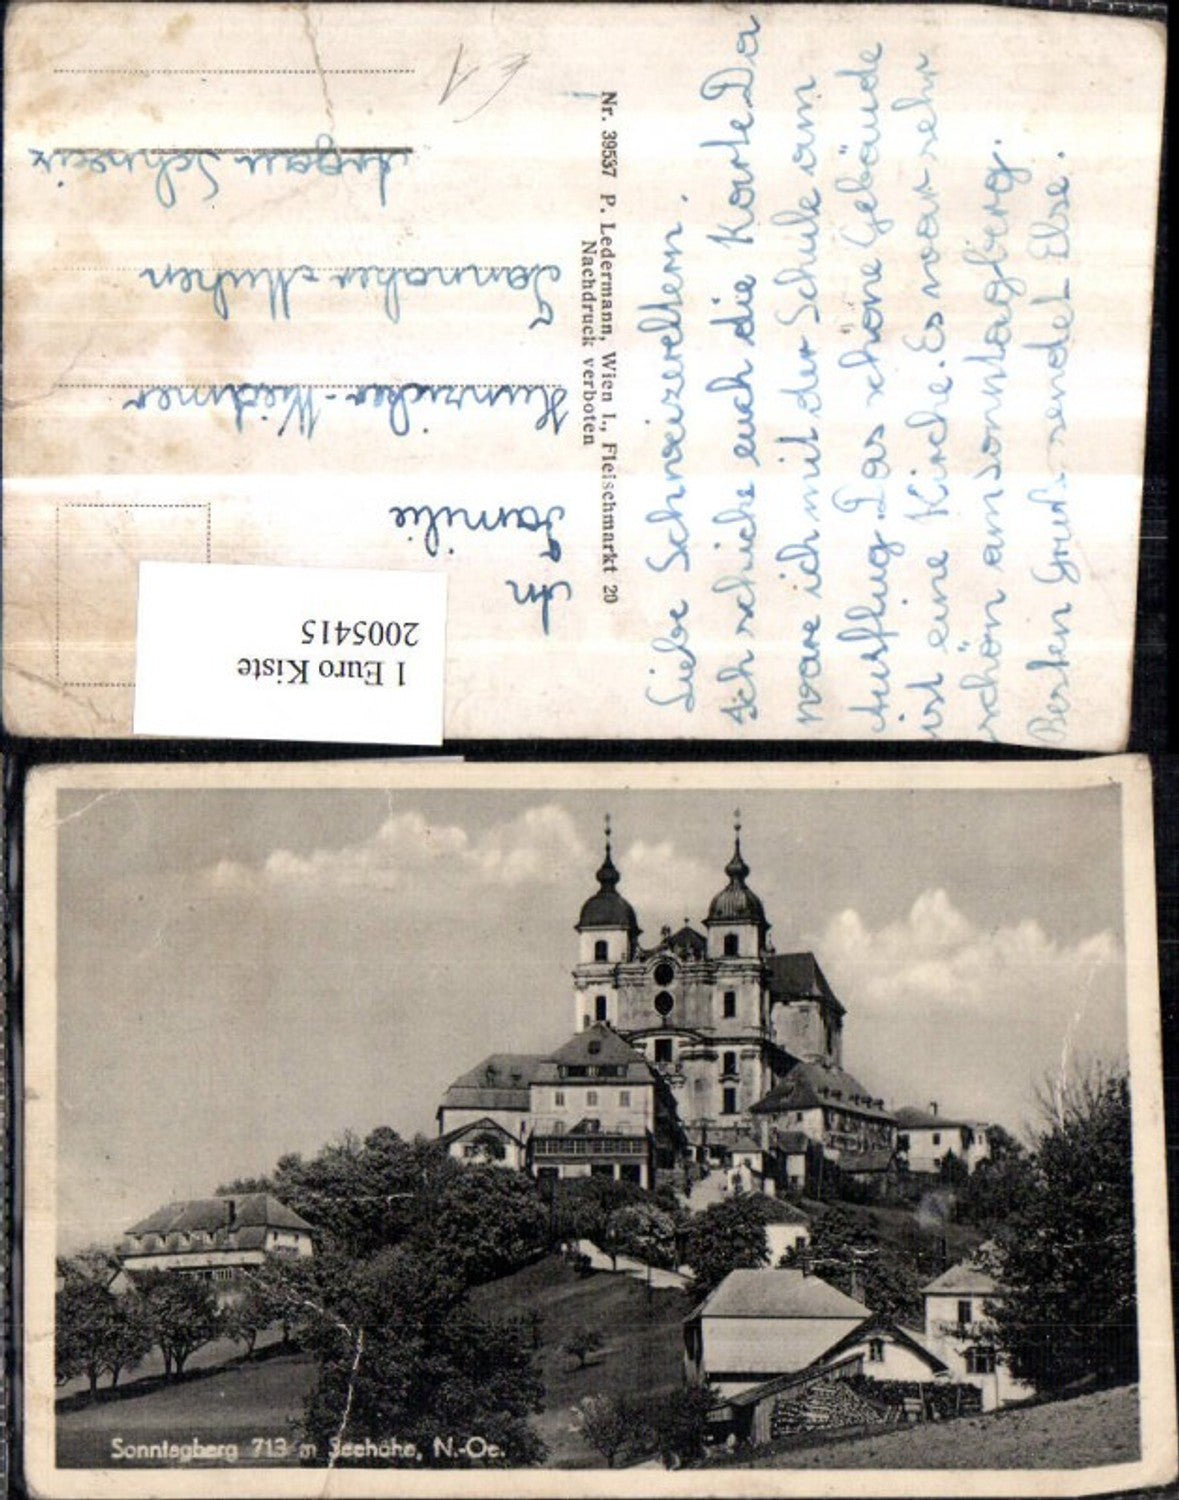 Liebe Schweizerltern.
Ich schicke euch die Karte Da
ware ich mit der Schule am
Ausflug. Das schöne Gebäude
ist eine Kirche. Es war sehr
schön am Sonntagberg.
Besten Gruß sendet Else.
Nr. 39537 P. Ledermann, Wien I., Fleischmarkt 20
Nachdruck verboten
An
Familie
Hunziker-Widmer
Muhen
Argau Schweiz
€ 1
1 Euro Kiste
2005415
Sonntagberg 713 m Seehöhe, N.-Oe.